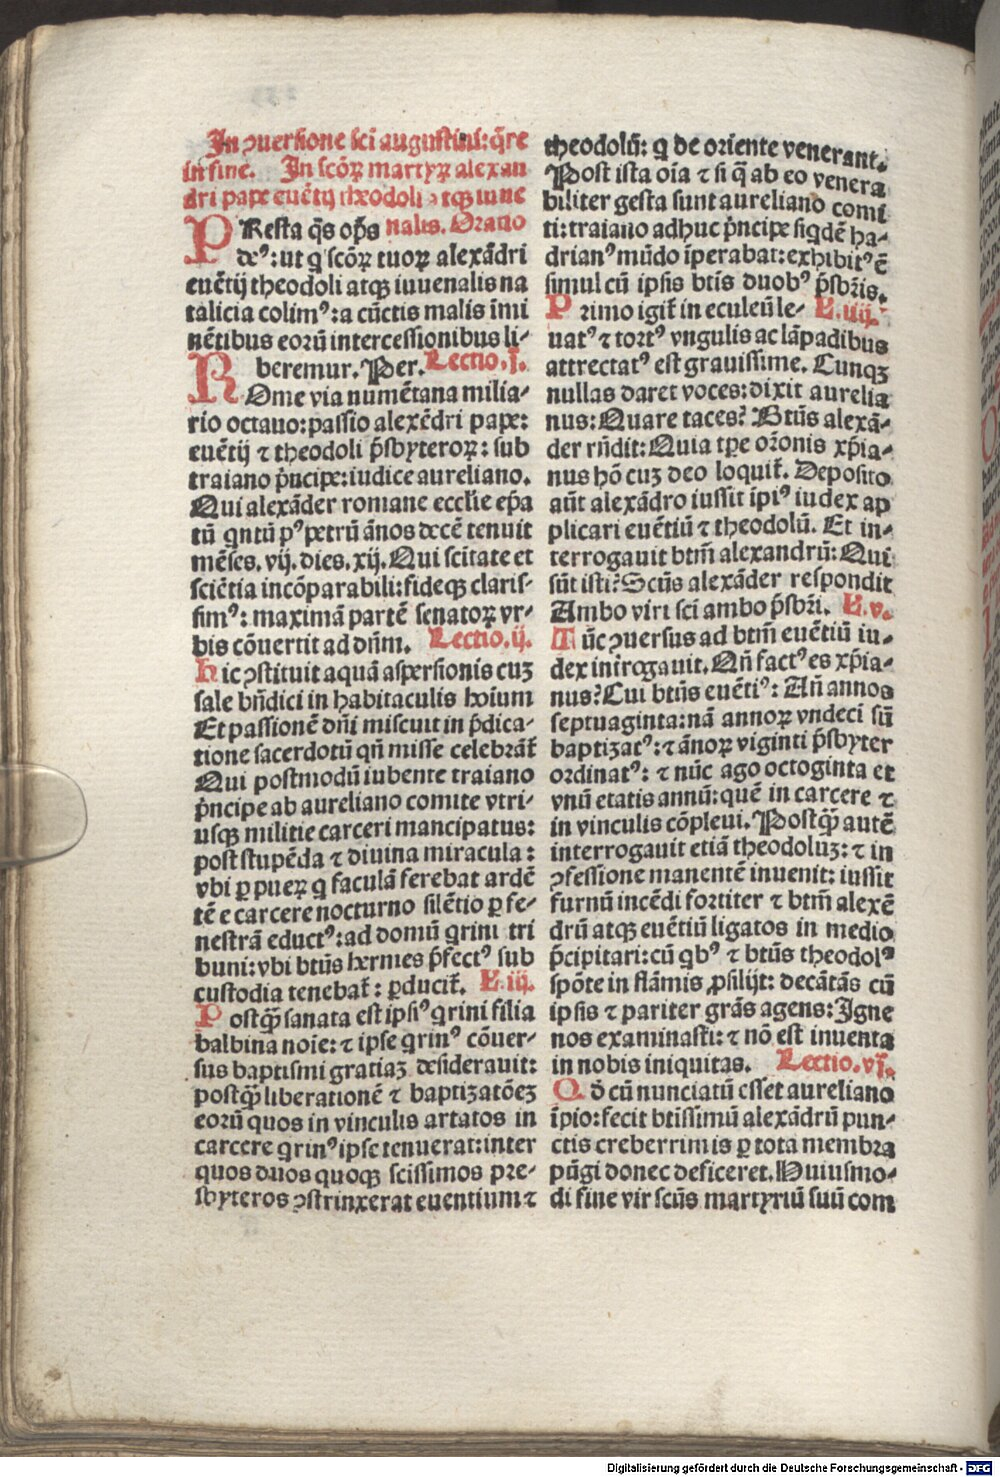 In ꝯuersione sci augustini: q̄re
in fine. In scōꝝ martyꝝ alexan
dri pape euētij theodoli atqꝫ iuue
PResta q̄s op̄s nalis. Oratio
de⁹: ut q scōꝝ tuoꝝ alexādri
euētij theodoli atqꝫ iuuenalis na
talicia colim⁹: a cūctis malis īmi
nētibus eorū intercessionibus li-
beremur. Per. Lectio. j.
ROme via numētana milia-
rio octauo: passio alexēdri pape:
euētij ⁊ theodoli p̄sbyteroꝝ: sub
traiano p̄ncipe: iudice aureliano.
Qui alexāder romane eccl̄ie ep̄a
tū qntū p⁹ petrū ānos decē tenuit
mēses. vij. dies. xij. Qui scītate et
sciētia incōparabili: fideqꝫ claris-
sim⁹: maximā partē senatoꝝ vr-
bis cōuertit ad dn̄m. Lectio. ij.
Hic ꝯstituit aquā aspersionis cuꝫ
sale bn̄dici in habitaculis hoīum
Et passionē dn̄i miscuit in p̄dica-
tione sacerdotū qn̄ misse celebrāt̄
Qui postmodū iubente traiano
p̄ncipe ab aureliano comite vtri-
usqꝫ militie carceri mancipatus:
post stupēda ⁊ diuina miracula:
vbi ꝑ pueꝝ q faculā ferebat ardē
tē e carcere nocturno silētio ꝑ fe-
nestrā educt⁹: ad domū qrini tri
buni: vbi btūs hermes p̄fect⁹ sub
custodia tenebat̄: ꝑducit̄. L. iij.
Postqꝫ̄ sanata est ipsi⁹ qrini filia
balbina noie: ⁊ ipse qrin⁹ cōuer-
sus baptismi gratiaꝫ desiderauit:
postqꝫ̄ liberationē ⁊ baptizatōeꝫ
eorū quos in vinculis artatos in
carcere qrin⁹ ipse tenuerat: inter
quos duos quoqꝫ scissimos pre-
sbyteros ꝯstrinxerat euentium ⁊
theodolū: q de oriente venerant.
Post ista oīa ⁊ si q̄ ab eo venera
biliter gesta sunt aureliano comi
ti: traiano adhuc p̄ncipe siqdē ha-
drian⁹ mūdo īperabat: exhibit⁹ ē
simul cū ipsis btīs duob⁹ p̄sbr̄is.
Primo igit̄ in eculeū le- L. iiij.
uat⁹ ⁊ tort⁹ vngulis ac lāpadibus
attrectat⁹ est grauissime. Cunqꝫ
nullas daret voces: dixit aurelia
nus: Quare taces? Btūs alexā-
der rn̄dit: Quia tꝑe or̄onis xp̄ia-
nus hō cuꝫ deo loquit̄. Deposito
aūt alexādro iussit īpi⁹ iudex ap
plicari euētiū ⁊ theodolū. Et in-
terrogauit btm̄ alexandrū: Qui
sūt isti? Scūs alexāder respondit
Ambo viri sci ambo p̄sbr̄i. L. v.
Tūc ꝯuersus ad btm̄ euētiū iu-
dex inirogauit. Qn̄ fact⁹ es xp̄ia-
nus? Cui btūs euēti⁹: An̄ annos
septuaginta: nā annoꝝ vndeci sū
baptizat⁹: ⁊ ānoꝝ viginti p̄sbyter
ordinat⁹: ⁊ nūc ago octoginta et
vnū etatis annū: quē in carcere ⁊
in vinculis cōpleui. Postqꝫ̄ autē
interrogauit etiā theodoluꝫ: ⁊ in
ꝯfessione manentē inuenit: iussit
furnū incēdi fortiter ⁊ btm̄ alexē
drū atqꝫ euētiū ligatos in medio
p̄cipitari: cū qb⁹ ⁊ btūs theodol⁹
spōte in flāmis ꝓsilijt: decātās cū
ipsis ⁊ pariter grās agens: Igne
nos examinasti: ⁊ nō est inuenta
in nobis iniquitas. Lectio. vj.
Qd̄ cū nunciatū esset aureliano
īpio: fecit btīssimū alexādrū pun-
ctis creberrimis ꝑ tota membra
pūgi donec deficeret. Huiusmo-
di fine vir scūs martyriū suū com
Digitalisierung gefördert durch die Deutsche Forschungsgemeinschaft - DFG